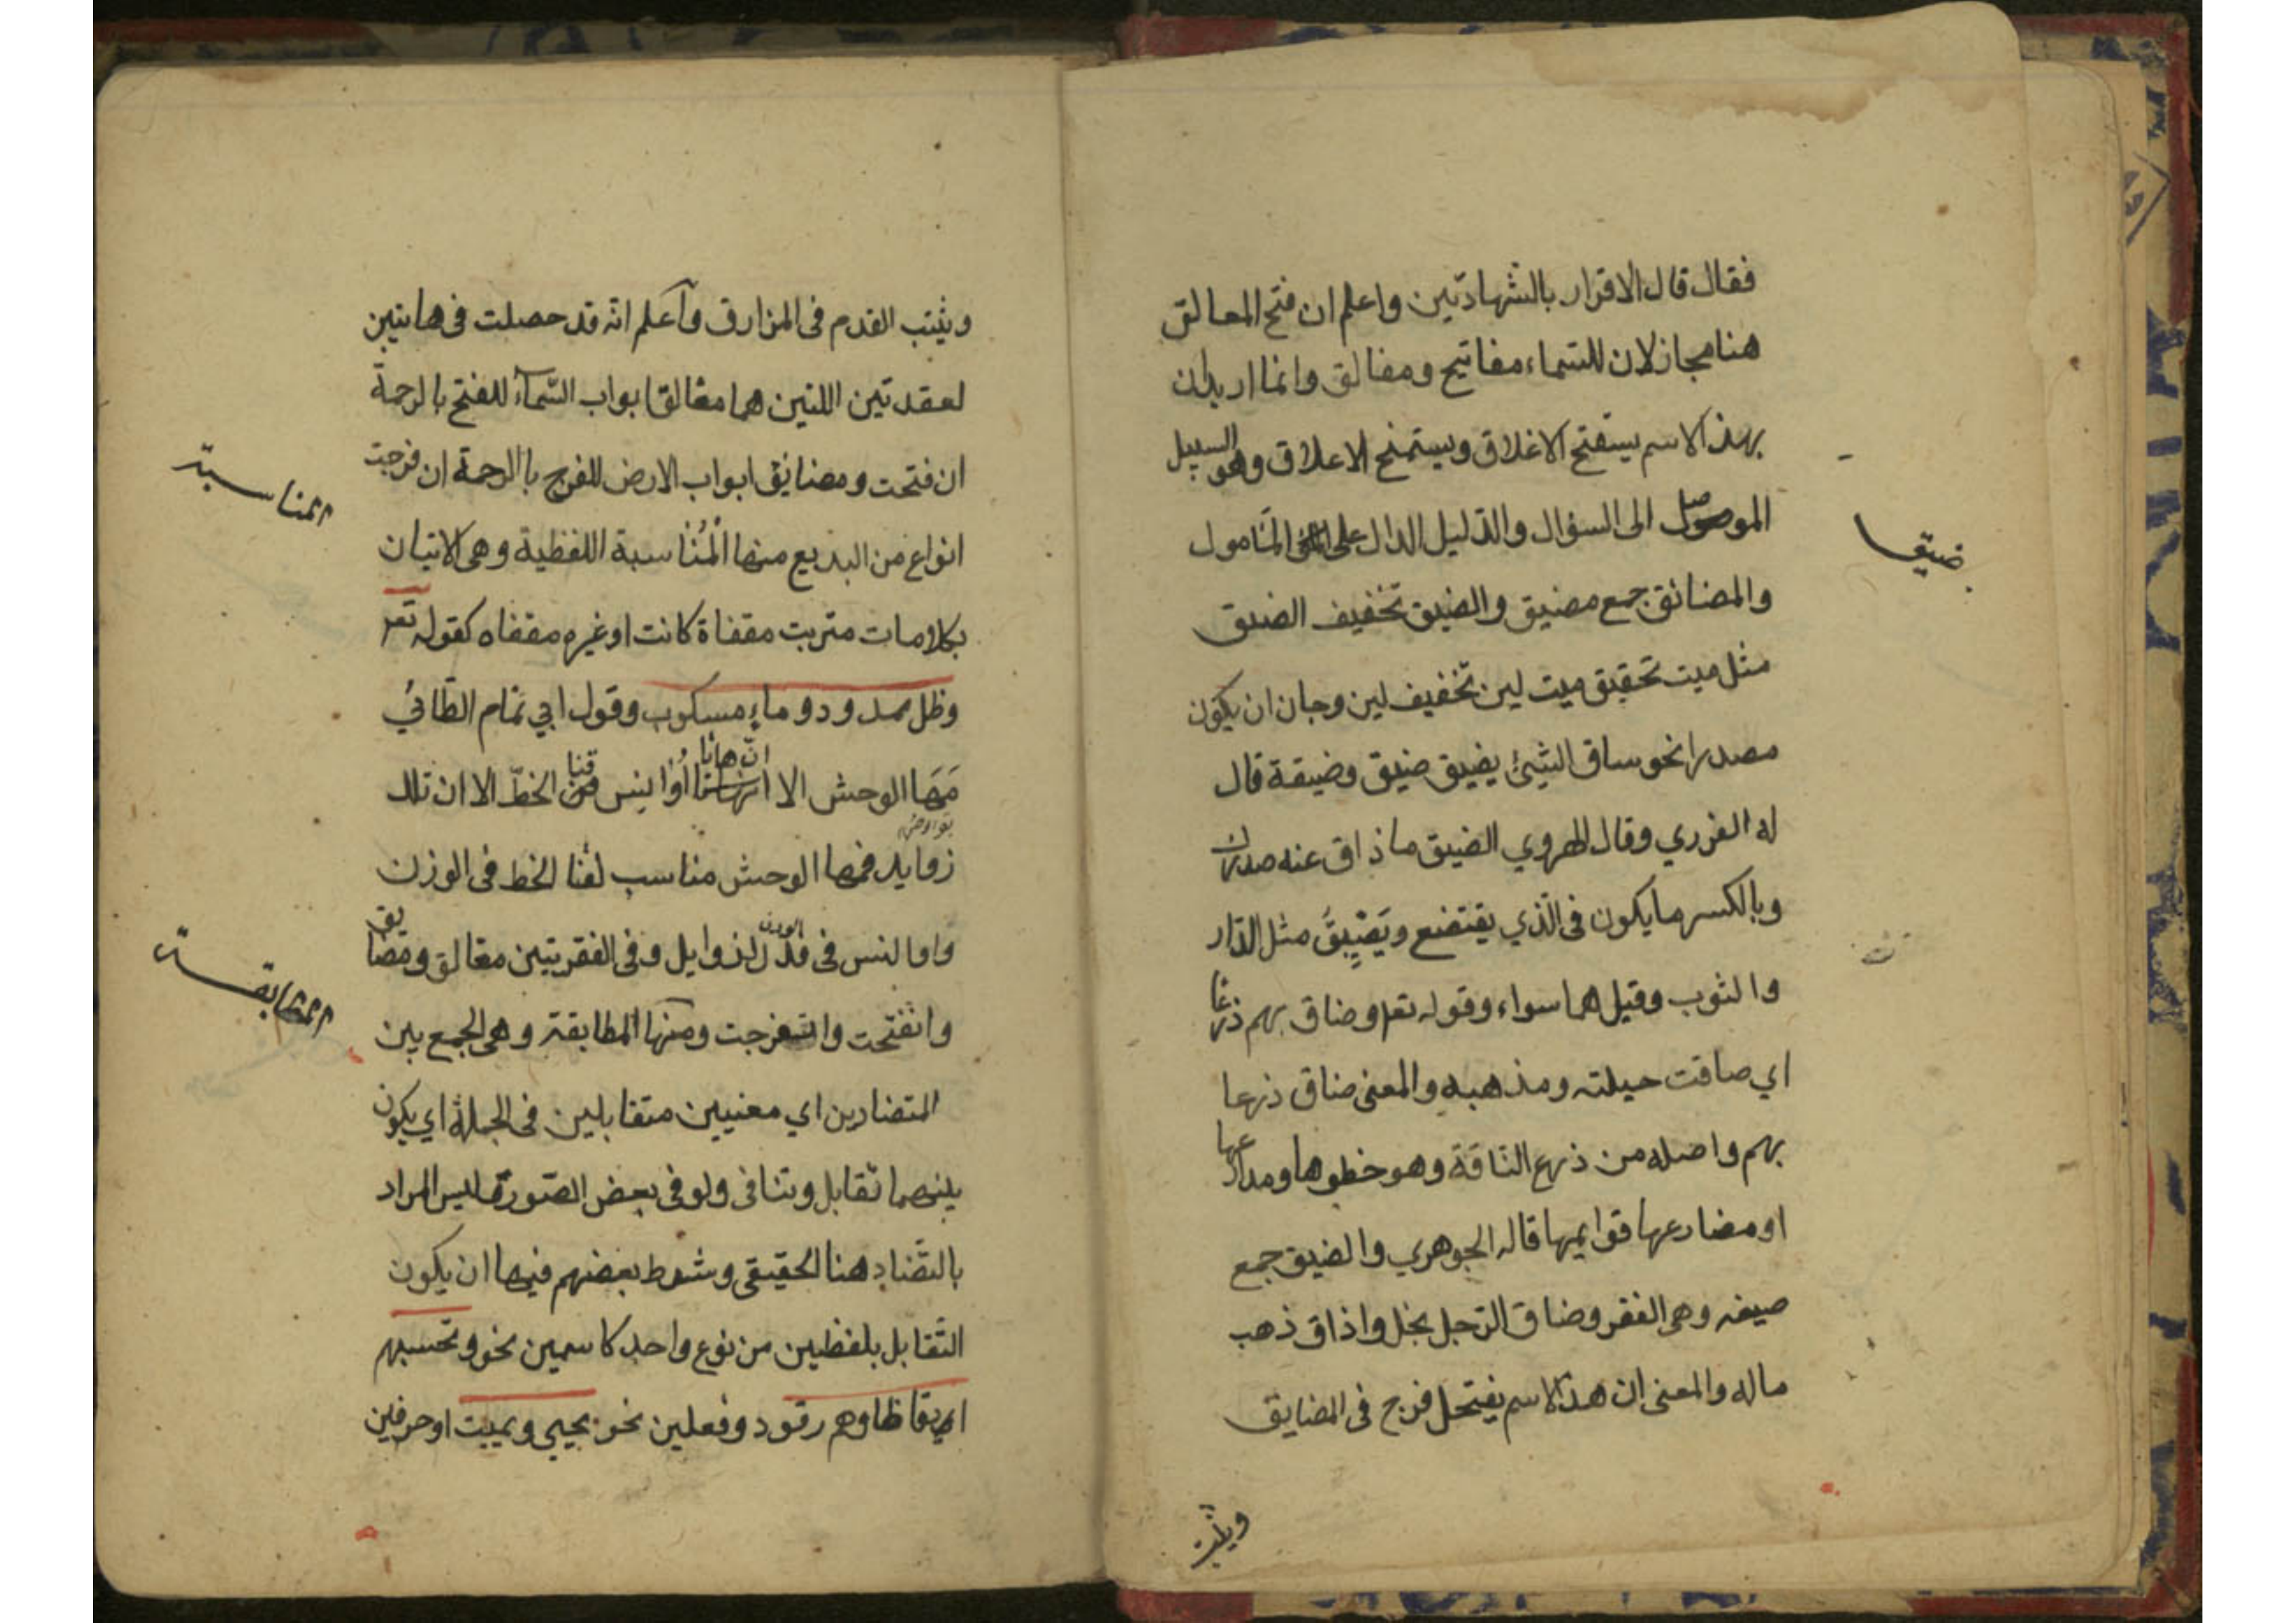 فقال قال الاقرار بالشهادتين واعلم ان فتح المعالق
هنا مجاز لان للسماء مفاتيح ومغالق وانما اريد ان
بهذا الاسم يستفتح الاغلاق ويستمنح الاعلاق وهو السبيل
الموصل الى السؤال والدليل الدال على المامول
ضيق
والمضائق جمع مضيق والضيق تخفيف الضيق
مثل ميت تحقيق ميت لين تخفيف لين وجان ان يكون
مصدرا نحو ساق الشئ يضيق ضيق وضيقة قال
له الفزري وقال الهروي الضيق ما ذاق عنه صدرك
وبالكسر ما يكون فى الذي يقتضع ويَضِيقُ مثل الدار
والثوب وقيل هما سواء وقوله تعر وضاق بهم ذرعا
اي صاقت حيلته ومذهبه والمعنى ضاق ذرعا
بهم واصله من ذرع الناقة وهو خطوها ومدارعها
او مضارعها قوايمها قاله الجوهري والضيق جمع
صيفه وهى الفقر وضاق الرجل بخل واذاق ذهب
ماله والمعنى ان هذا الاسم يفتح فرج فى المضايق
ويثبت
ويثبت القدم فى المزارق وآعلم انه قد حصلت فى هاتين
لعقدتين اللتين هما مغالق ابواب السماء للفتح بالرحمة
ان فتحت ومضايق ابواب الارض للفرج باالرحمة ان فرجت
المناسبة
انواع من البديع منها المُنَاسبة اللفظية وهى الاتيان
بكلامات متربت مقفاة كانت او غيره مقفاه كقوله تعر
وظل ممدود وماء مسكوب وقول ابي تمام الطائي
مَهَا الوحش الا انّ هاتا اُوَانِس قنا الخطّ الا ان تلك
زوايد فمها الوحش مناسب لقنا الخط فى الوزن
واوالنس فى الوزن لذوايل وفى الفقرتين مغالق ومضايق
المطابقة
وانفتحت وانفرجت ومنها المطابقة وهى الجمع بين
المتضادين اي معنيين متقابلين فى الجملة اي يكون
بينهما تقابل وتنافى ولو فى بعض الصورة ليس المراد
بالتضاد هنا الحقيقى وشرط بعضهم فيها ان يكون
التقابل بلفظين من نوع واحد كاسمين نحو وتحسبهم
ايقاظا وهم رقود وفعلين نحو يحيي ويميت او حرفين